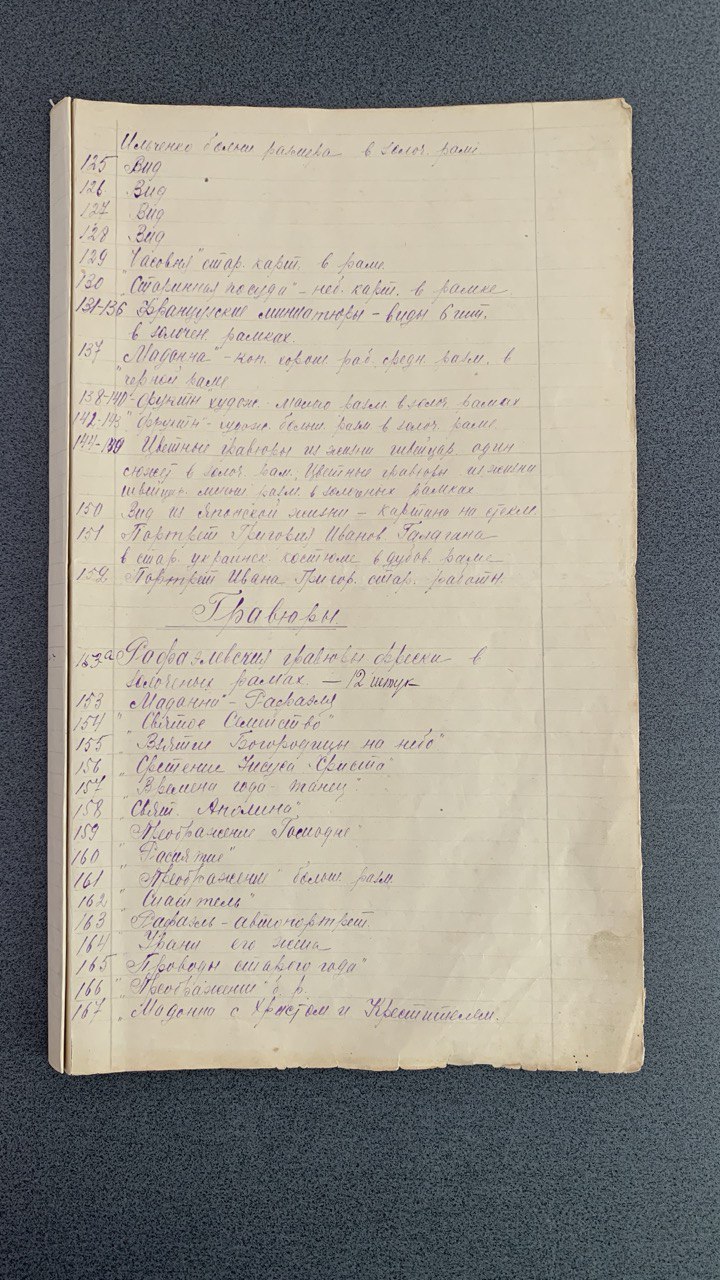 Ильченко больш размера в золоч. раме
125 Вид
126 Вид
127 Вид
128 Вид
129 "Часовня" стар. карт. в раме
130 "Старинная посуда" – неб. карт. в рамке
131-136 Французские миниатюры – виды 6 шт.
в золочен. рамках.
137 "Мадонна" – коп. хорош раб. средн. разм. в
черной раме
138-141 худож. разм. в золоч. рамках
142-143 "Фрукты" – больш разм в золоч. раме
144-149 Цветные гравюры из жизни швейцар. один
сюжет в золоч. рам. Цветные гравюры из жизни
швейцар. меньш разм. в рамках
150 Вид из Японской жизни – картина на стекле
151 Портрет Григория Иванов. Галагана
в стар. украинск. костюме в дубов. раме
152 Портрет Ивана Григор. стар. работы
Гравюры
153а Рафаэлевския гравюры фрески в
золоченых рамах. – 12 штук
153 "Мадонна" – Рафаэля
154 "Святое Семейство"
155 "Взятие Богородицы на небо"
156 "Сретение Иисуса Христа"
157 "Времена года – танец"
158 "Свят. Аполина"
159 "Преображение Господне"
160 "Распятие"
161 "Преображение" больш разм
162 "Спаситель"
163 "Рафаэль – автопортрет
164 " его
165 "Проводы старого года"
166 "Преображение" б. р.
167 "Мадонна с Христом и Крестителем.